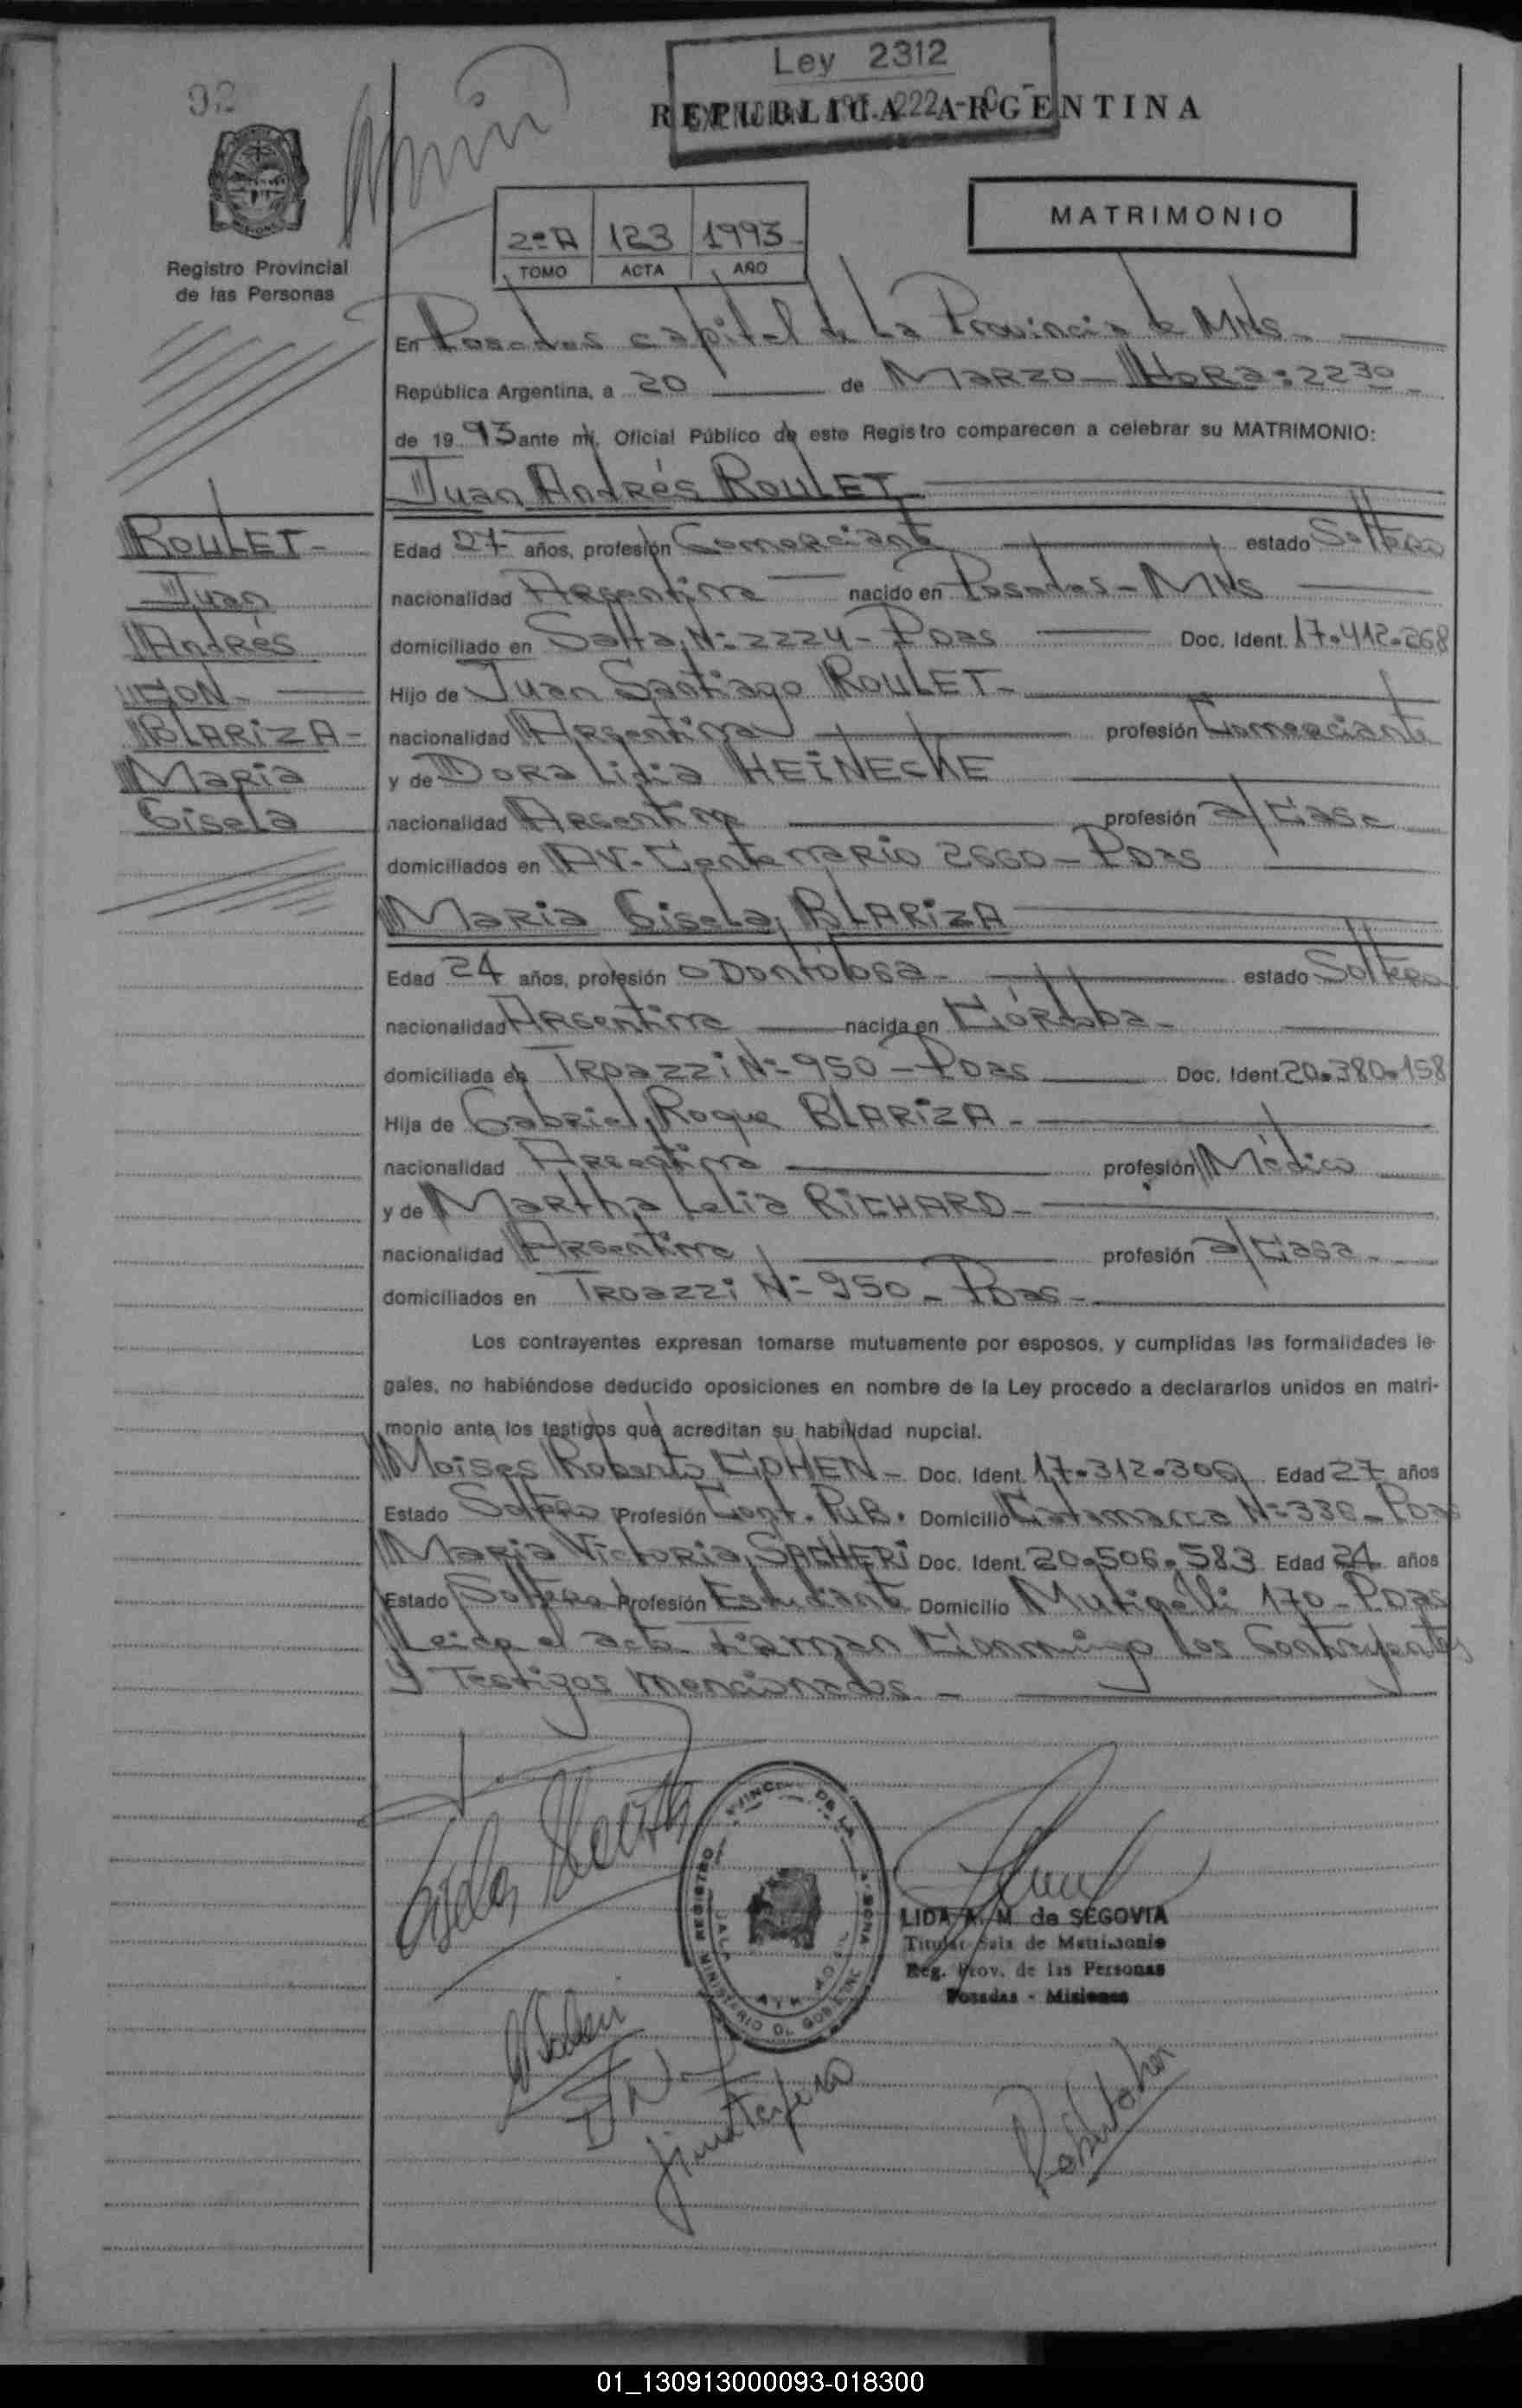 92
Ley 2312
REPUBLICA ARGENTINA
MATRIMONIO
2ºA 123 1993
TOMO ACTA AÑO
Registro Provincial
de las Personas
En Posadas capital de la Provincia de Mnes
República Argentina, a 20 de MARZO - HORA: 2230
de 1993 ante mi, Oficial Público de este Registro comparecen a celebrar su MATRIMONIO:
Juan Andrés ROULET
ROULET -
Juan
Andrés
CON -
BLARIZA -
Maria
Gisela
Edad 27 años, profesión Comerciante estado Soltero
nacionalidad Argentina nacido en Posadas - Mnes
domiciliado en Salta Nº 2224 - Pdas Doc. Ident. 17.412.268
Hijo de Juan Santiago ROULET -
nacionalidad Argentina profesión Comerciante
y de Dora Lidia HEINECKE
nacionalidad Argentina profesión a/Casa
domiciliados en AV. Centenario 2660 - Pdas
Maria Gisela BLARIZA
Edad 24 años, profesión Odontóloga - estado Soltera
nacionalidad Argentina nacida en Córdoba -
domiciliada en Troazzi Nº 950 - Pdas Doc. Ident. 20.380.158
Hija de Gabriel Roque BLARIZA -
nacionalidad Argentina profesión Médico
y de Martha Lelia RICHARD -
nacionalidad Argentina profesión a/Casa -
domiciliados en Troazzi Nº 950 - Pdas -
Los contrayentes expresan tomarse mutuamente por esposos, y cumplidas las formalidades le-
gales, no habiéndose deducido oposiciones en nombre de la Ley procedo a declararlos unidos en matri-
monio ante los testigos que acreditan su habilidad nupcial.
Moises Roberto COHEN - Doc. Ident. 17.312.306 Edad 27 años
Estado Soltero Profesión Cont. Pub. Domicilio Catamarca Nº 336 - Pdas
Maria Victoria SACHERI Doc. Ident. 20.506.583 Edad 24 años
Estado Soltera Profesión Estudiante Domicilio Mutinelli 170 - Pdas
Leida el acta Firman Conmigo los Contrayentes
y Testigos mencionados -
LIDA A. M. de SEGOVIA
Titular Sala de Matrimonio
Reg. Prov. de las Personas
Posadas - Misiones
01_130913000093-018300